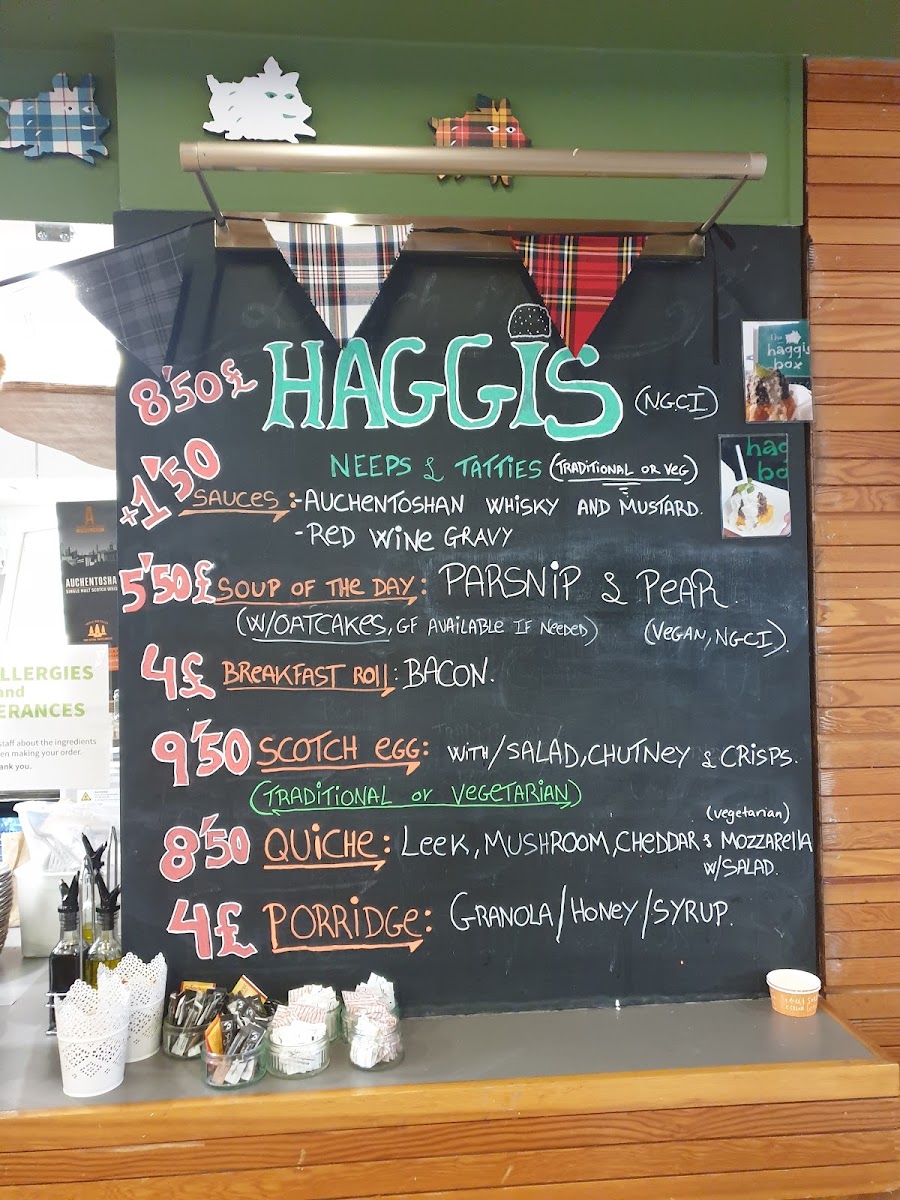 The
haggis
box
8'50£ HAGGIS (NGCI)
hag
bo
+1'50
NEEPS & TATTIES (TRADITIONAL OR VEG)
SAUCES:-AUCHENTOSHAN WHISKY AND MUSTARD.
-RED WINE GRAVY
5'50£ SOUP OF THE DAY: PARSNIP & PEAR.
(W/OATCAKES, GF AVAILABLE IF NEEDED) (VEGAN, NGCI).
4£ BREAKFAST ROLL: BACON.
9'50 SCOTCH EGG: WITH/SALAD, CHUTNEY & CRISPS.
(TRADITIONAL or VEGETARIAN)
(vegetarian)
8'50 QUICHE: LEEK, MUSHROOM, CHEDDAR & MOZZARELLA
W/SALAD.
4£ PORRIDGE: GRANOLA/HONEY/SYRUP.
AUCHENTOSHA
SINGLE MALT SCOTCH WHIS
LLERGIES
and
ERANCES
staff about the ingredients
en making your order.
ank you.